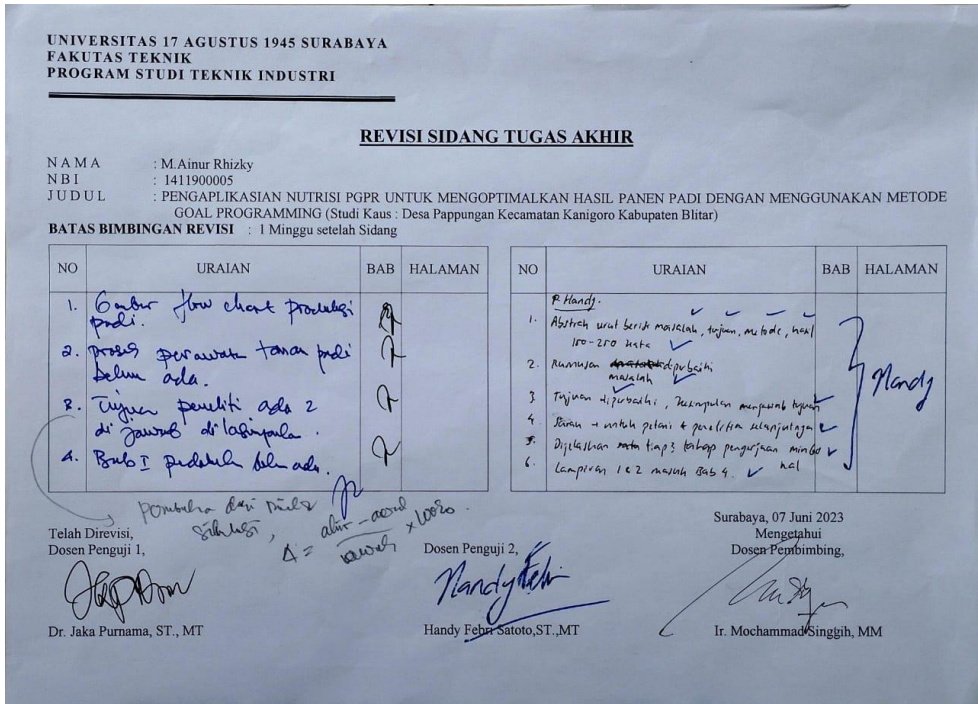 UNIVERSITAS 17 AGUSTUS 1945 SURABAYA
FAKUTAS TEKNIK
PROGRAM STUDI TEKNIK INDUSTRI
REVISI SIDANG TUGAS AKHIR
NAMA : M.Ainur Rhizky
NBI : 1411900005
JUDUL : PENGAPLIKASIAN NUTRISI PGPR UNTUK MENGOPTIMALKAN HASIL PANEN PADI DENGAN MENGGUNAKAN METODE
GOAL PROGRAMMING (Studi Kaus : Desa Pappungan Kecamatan Kanigoro Kabupaten Blitar)
BATAS BIMBINGAN REVISI : 1 Minggu setelah Sidang
NO URAIAN BAB HALAMAN
1. flow chart
padi.
2. proses perawatan padi
belum ada.
3. Tujuan peneliti ada 2
di jawab di
4. Bab I belum ada.
NO URAIAN BAB HALAMAN
P. Handy.
1. Abstrak urut berisi masalah, tujuan, metode, hasil
150-250 kata
2. Rumusan diperbaiki
masalah
3 Tujuan diperbaiki, kesimpulan menjawab tujuan
4 Saran → untuk petani + penelitian selanjutnya
5. Dijelaskan tiap2 tahap pengerjaan
6. Lampiran 1 & 2 masuk Bab 4. hal
Handy
dari
Δ = akhir - awal x 100%
Telah Direvisi,
Dosen Penguji 1,
Dr. Jaka Purnama, ST., MT
Dosen Penguji 2,
Handy Febri
Handy Febri Satoto,ST.,MT
Surabaya, 07 Juni 2023
Mengetahui
Dosen Pembimbing,
Ir. Mochammad Singgih, MM